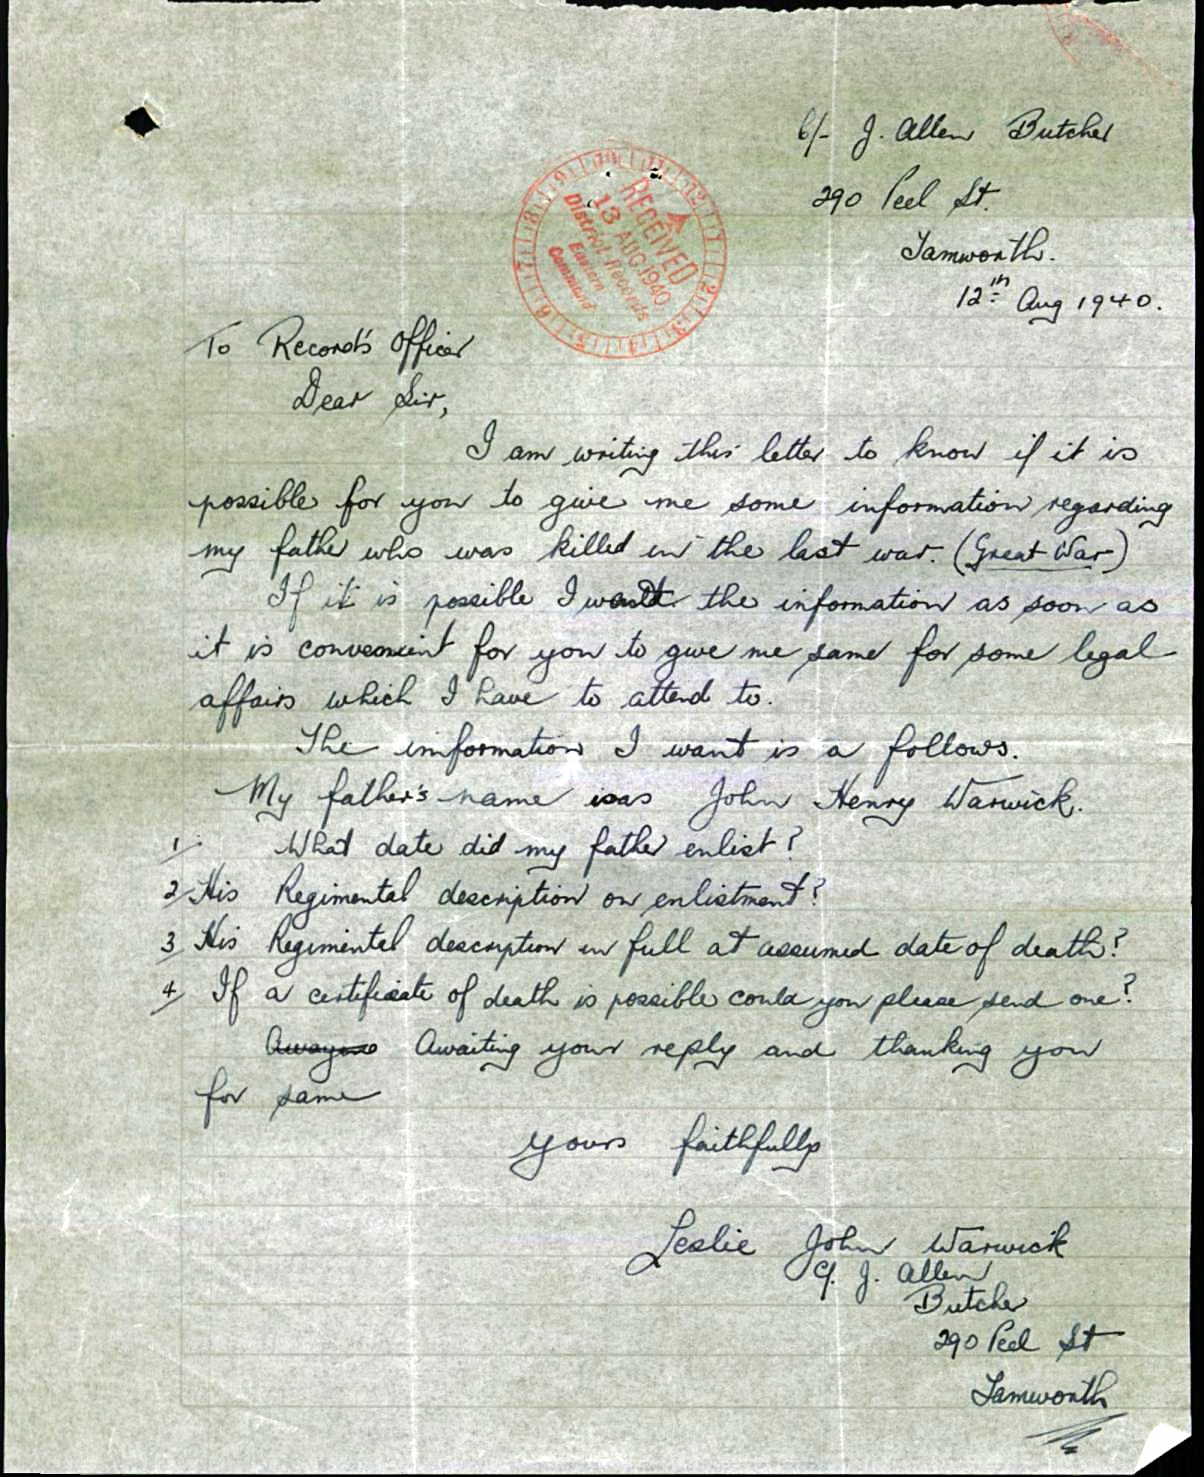 C/- J. Allen Butcher
290 Peel St.
Tamworth.
12th Aug 1940.
RECEIVED
13 AUG. 1940
District Records
Eastern
Command
To Record's Officer
Dear Sir,
I am writing this letter to know if it is
possible for you to give me some information regarding
my father who was killed in the last war. (Great War)
If it is possible I want the information as soon as
it is convenient for you to give me same for some legal
affairs which I have to attend to.
The imformation I want is a follows.
My father's name was John Henry Warwick.
1/ What date did my father enlist?
2/ His Regimental description on enlistment?
3/ His Regimental description in full at assumed date of death?
4/ If a certificate of death is possible could you please send one?
Awaiting your reply and thanking you
for same
yours faithfully
Leslie John Warwick
C/. J. Allen
Butcher
290 Peel St
Tamworth